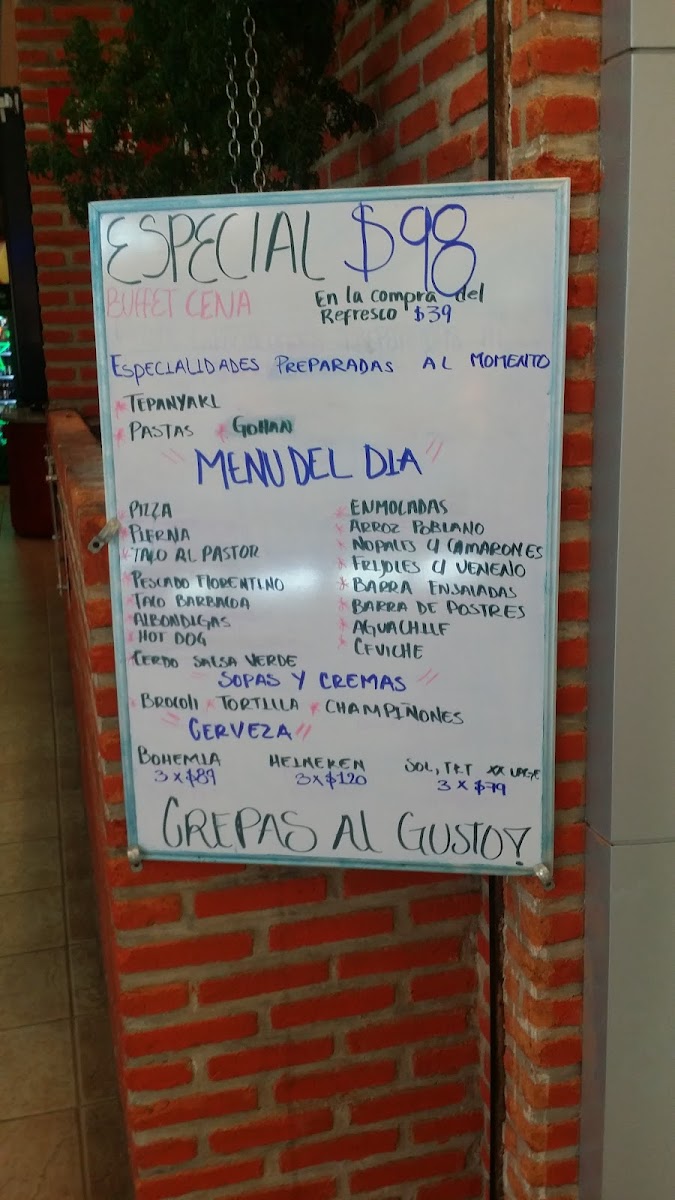 ESPECIAL $98
BUFFET CENA
En la compra del
Refresco $39
ESPECIALIDADES PREPARADAS AL MOMENTO
* TEPANYAKI
* PASTAS * GOHAN
" MENU DEL DIA "
* PIZZA
* PIERNA
* TACO AL PASTOR
* PESCADO FLORENTINO
* TACO BARBACOA
* ALBONDIGAS
* HOT DOG
* CERDO SALSA VERDE
* ENMOLADAS
* ARROZ POBLANO
* NOPALES C/ CAMARONES
* FRIJOLES C/ VENENO
* BARRA ENSALADAS
* BARRA DE POSTRES
* AGUACHILE
* CEVICHE
" SOPAS Y CREMAS "
* BROCOLI * TORTILLA * CHAMPIÑONES
" CERVEZA "
BOHEMIA
3 x $89
HEINEKEN
3 x $120
SOL, TKT XX LAGE
3 x $79
CREPAS AL GUSTO!